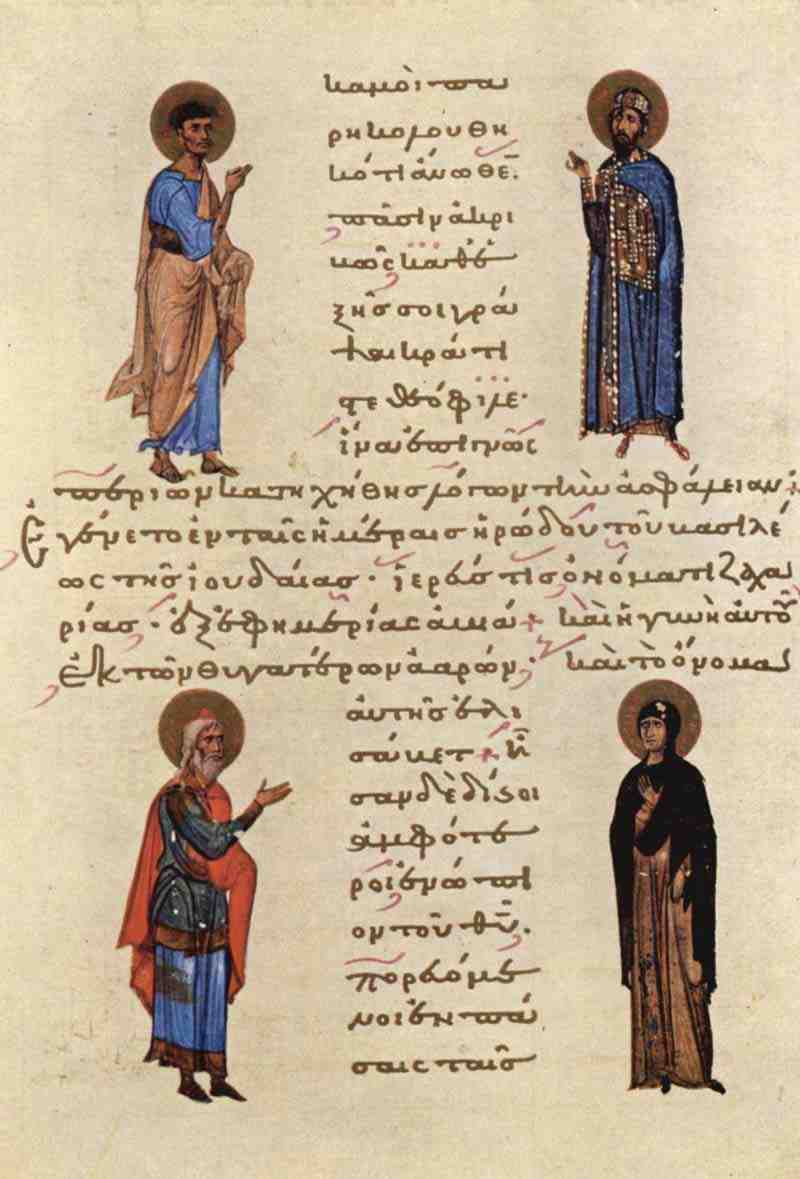 καμοὶ πα
ρηκολουθη
κότι ἄνωθε̅.
πᾶσιν ἀκρι
βῶς καθε
ξῆς σοι γρά
ψαι κράτι
στε θεόφιλε·
ἵνα ἐπιγνῶς
περὶ ὧν κατηχήθης λόγων τὴν ἀσφάλειαν·
Ἐγένετο ἐν ταῖς ἡμέραις ἡρώδου τοῦ βασιλέ
ως τῆς ἰουδαίας· ἱερεύς τις ὀνόματι ζαχα
ρίας· ἐξ ἐφημερίας ἀβιά + καὶ ἡ γυνὴ αὐτοῦ
ἐκ τῶν θυγατέρων ἀαρών· καὶ τὸ ὄνομα
αὐτῆς ἐλι
σάβετ + ἦ
σαν δὲ δίκαιοι
ἀμφότε
ροι ἐνώπι
ον τοῦ θ̅υ̅.
πορευόμε
νοι ἐν πά
σαις ταῖς